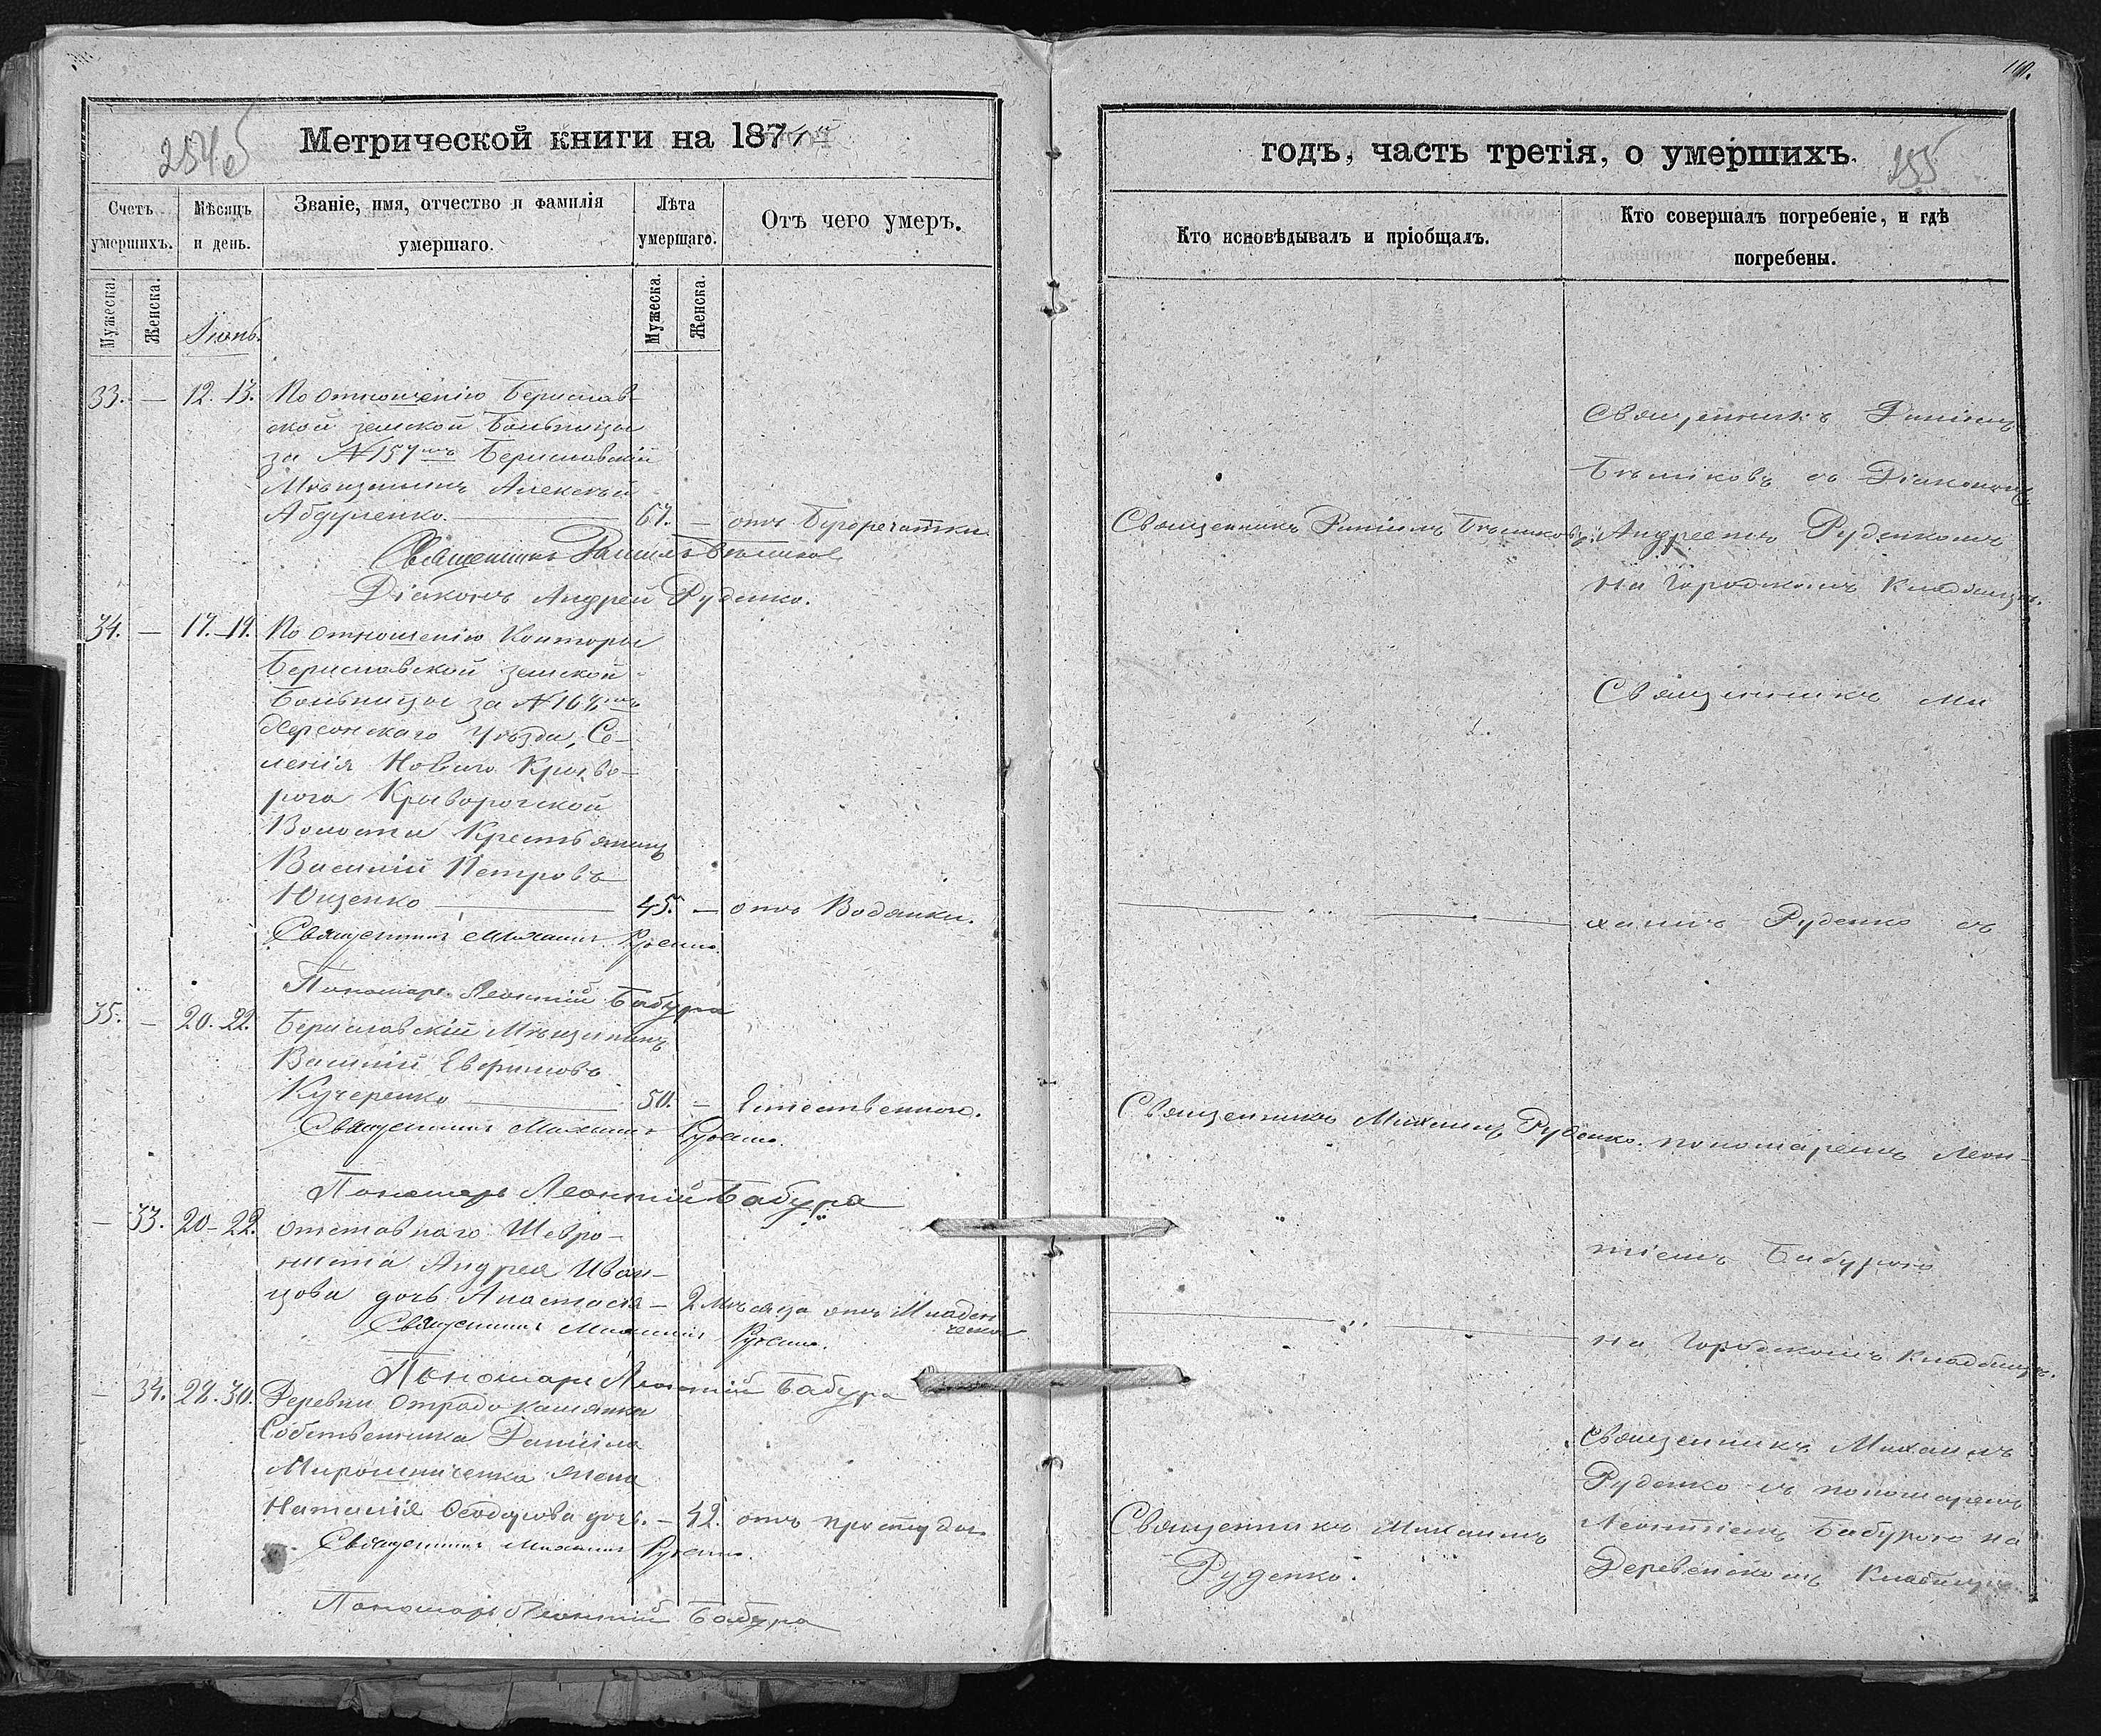 Метрической книги на 1871й
254 об
Счетъ умершихъ.
Мѣсяцъ и день.
Званіе, имя, отчество и фамилія умершаго.
Лѣта умершаго.
Отъ чего умеръ.
Мужеска.
Женска.
Мужеска.
Женска.
Іюнь.
33. — 12. 13. По отношенію Берислав-
ской земской Больницы
за №157мъ Бериславскій
Мѣщанинъ Алексѣй
Абдуленко. 67. — отъ Бугорчатки
Священникъ Даніилъ Бѣликов
Діаконъ Андрей Руденко.
34. — 17.-19. По отношенію Конторы
Бериславской земской
Больницы за №
Херсонскаго Уѣзда, Се-
ленія Новаго Криво-
рога Криворогской
Волости Крестьянинъ
Василій Петровъ
Ющенко 45. — отъ Водянки.
Священникъ Михаилъ Руденко.
Пономарь Леонтій Бабура
35. — 20. 22. Бериславскій Мѣщанинъ
Василій Евфимовъ
Кучеренко 50. — Естественною.
Священникъ Михаилъ Руденко.
Пономарь Леонтій Бабура
— 33. 20-22. отставнаго Шевро-
ниста Андрея Иван-
цова дочь Анастасія — 2 Мѣсяца отъ Младен
ческой
Священникъ Михаилъ Руденко.
Пономарь Леонтій Бабура
— 34. 28.30. Деревни Отрадо Камянки
Собственника Даніила
Мирошниченка жена
Наталія Ѳеодорова дочь. — 42. отъ простуды
Священникъ Михаилъ Руденко.
Пономарь Леонтій Бабура
годъ, часть третія, о умершихъ.
255
Кто исповѣдывалъ и пріобщалъ.
Кто совершалъ погребеніе, и гдѣ погребены.
Священникъ Даніилъ
Бѣликовъ съ Діакономъ
Священникъ Даніилъ Бѣликовъ. Андреемъ Руденкомъ
на Городскомъ Кладбищѣ.
Священникъ Ми
хаилъ Руденко съ
Священникъ Михаилъ Руденко. пономаремъ Леон-
тіемъ Бабурою
на Городскомъ Кладбищѣ.
Священникъ Михаилъ
Руденко съ пономаремъ
Священникъ Михаилъ Леонтіемъ Бабурою на
Руденко. Деревенскомъ Кладбищѣ.